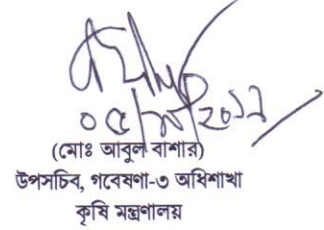 (মোঃ আবুল বাশার)
উপসচিব, গবেষণা-৩ অধিশাখা
কৃষি মন্ত্রণালয়